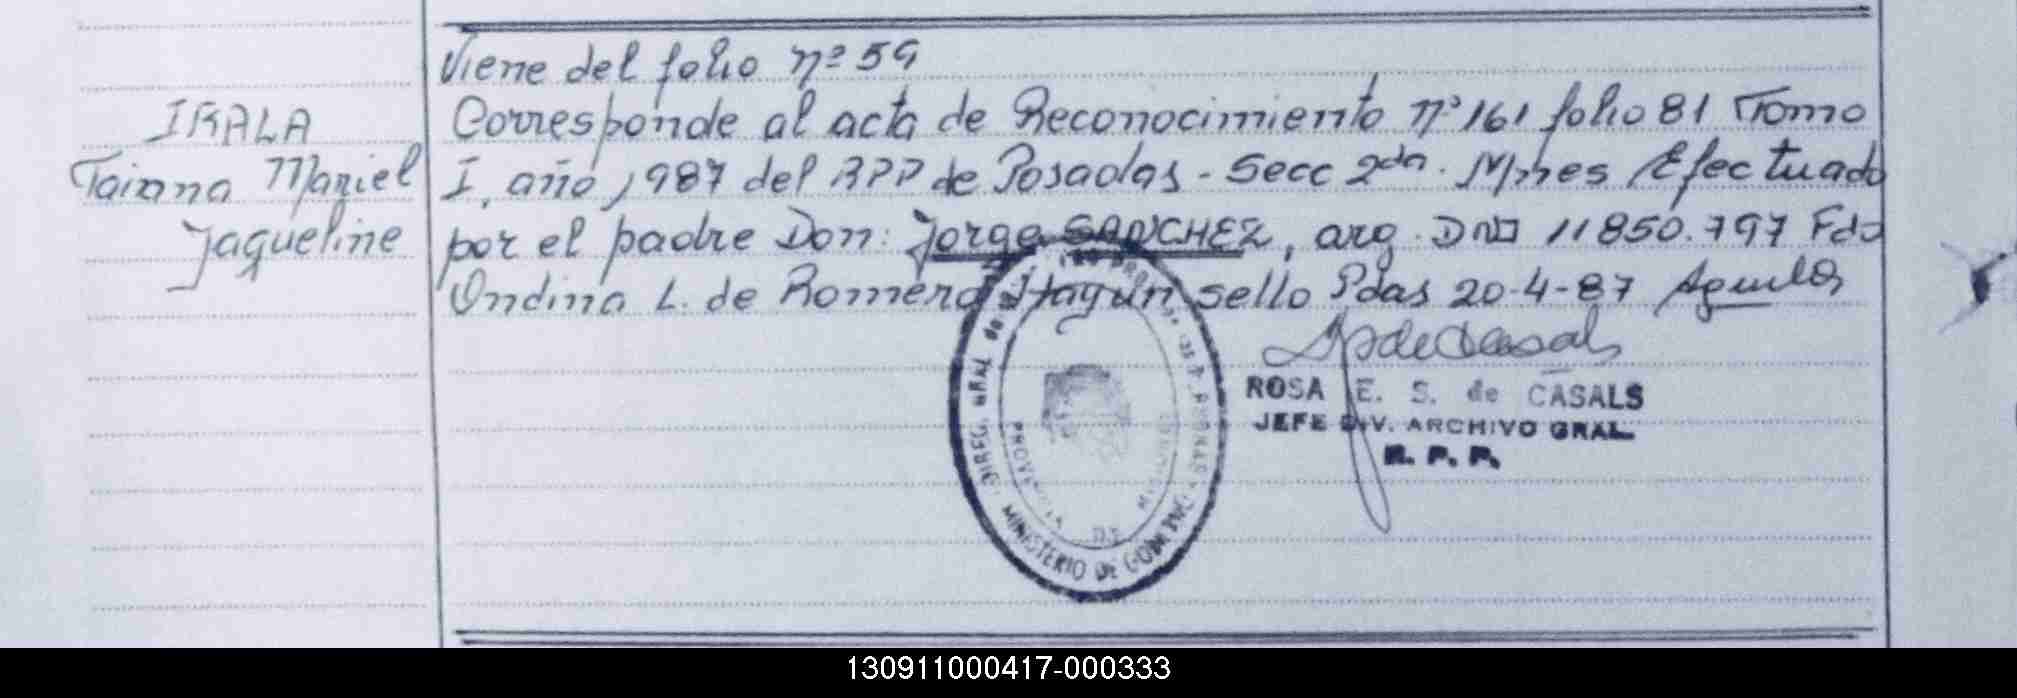 Viene del folio nº 59
IRALA
Taiana Mariel
Jaqueline
Corresponde al acta de Reconocimiento nº 161 folio 81 Tomo
I, año 1987 del RPP de Posadas - Secc 2da. Mnes Efectuado
por el padre Don: Jorge SANCHEZ, arg. DNI 11850.797 Fdo
Ondina L. de Romero Hay un sello Pdas 20-4-87
ROSA E. S. de CASALS
JEFE DIV. ARCHIVO GRAL.
R. P. P.
DIREC. GRAL. de
MINISTERIO DE GOBIERNO
PROVINCIA DE MISIONES
130911000417-000333